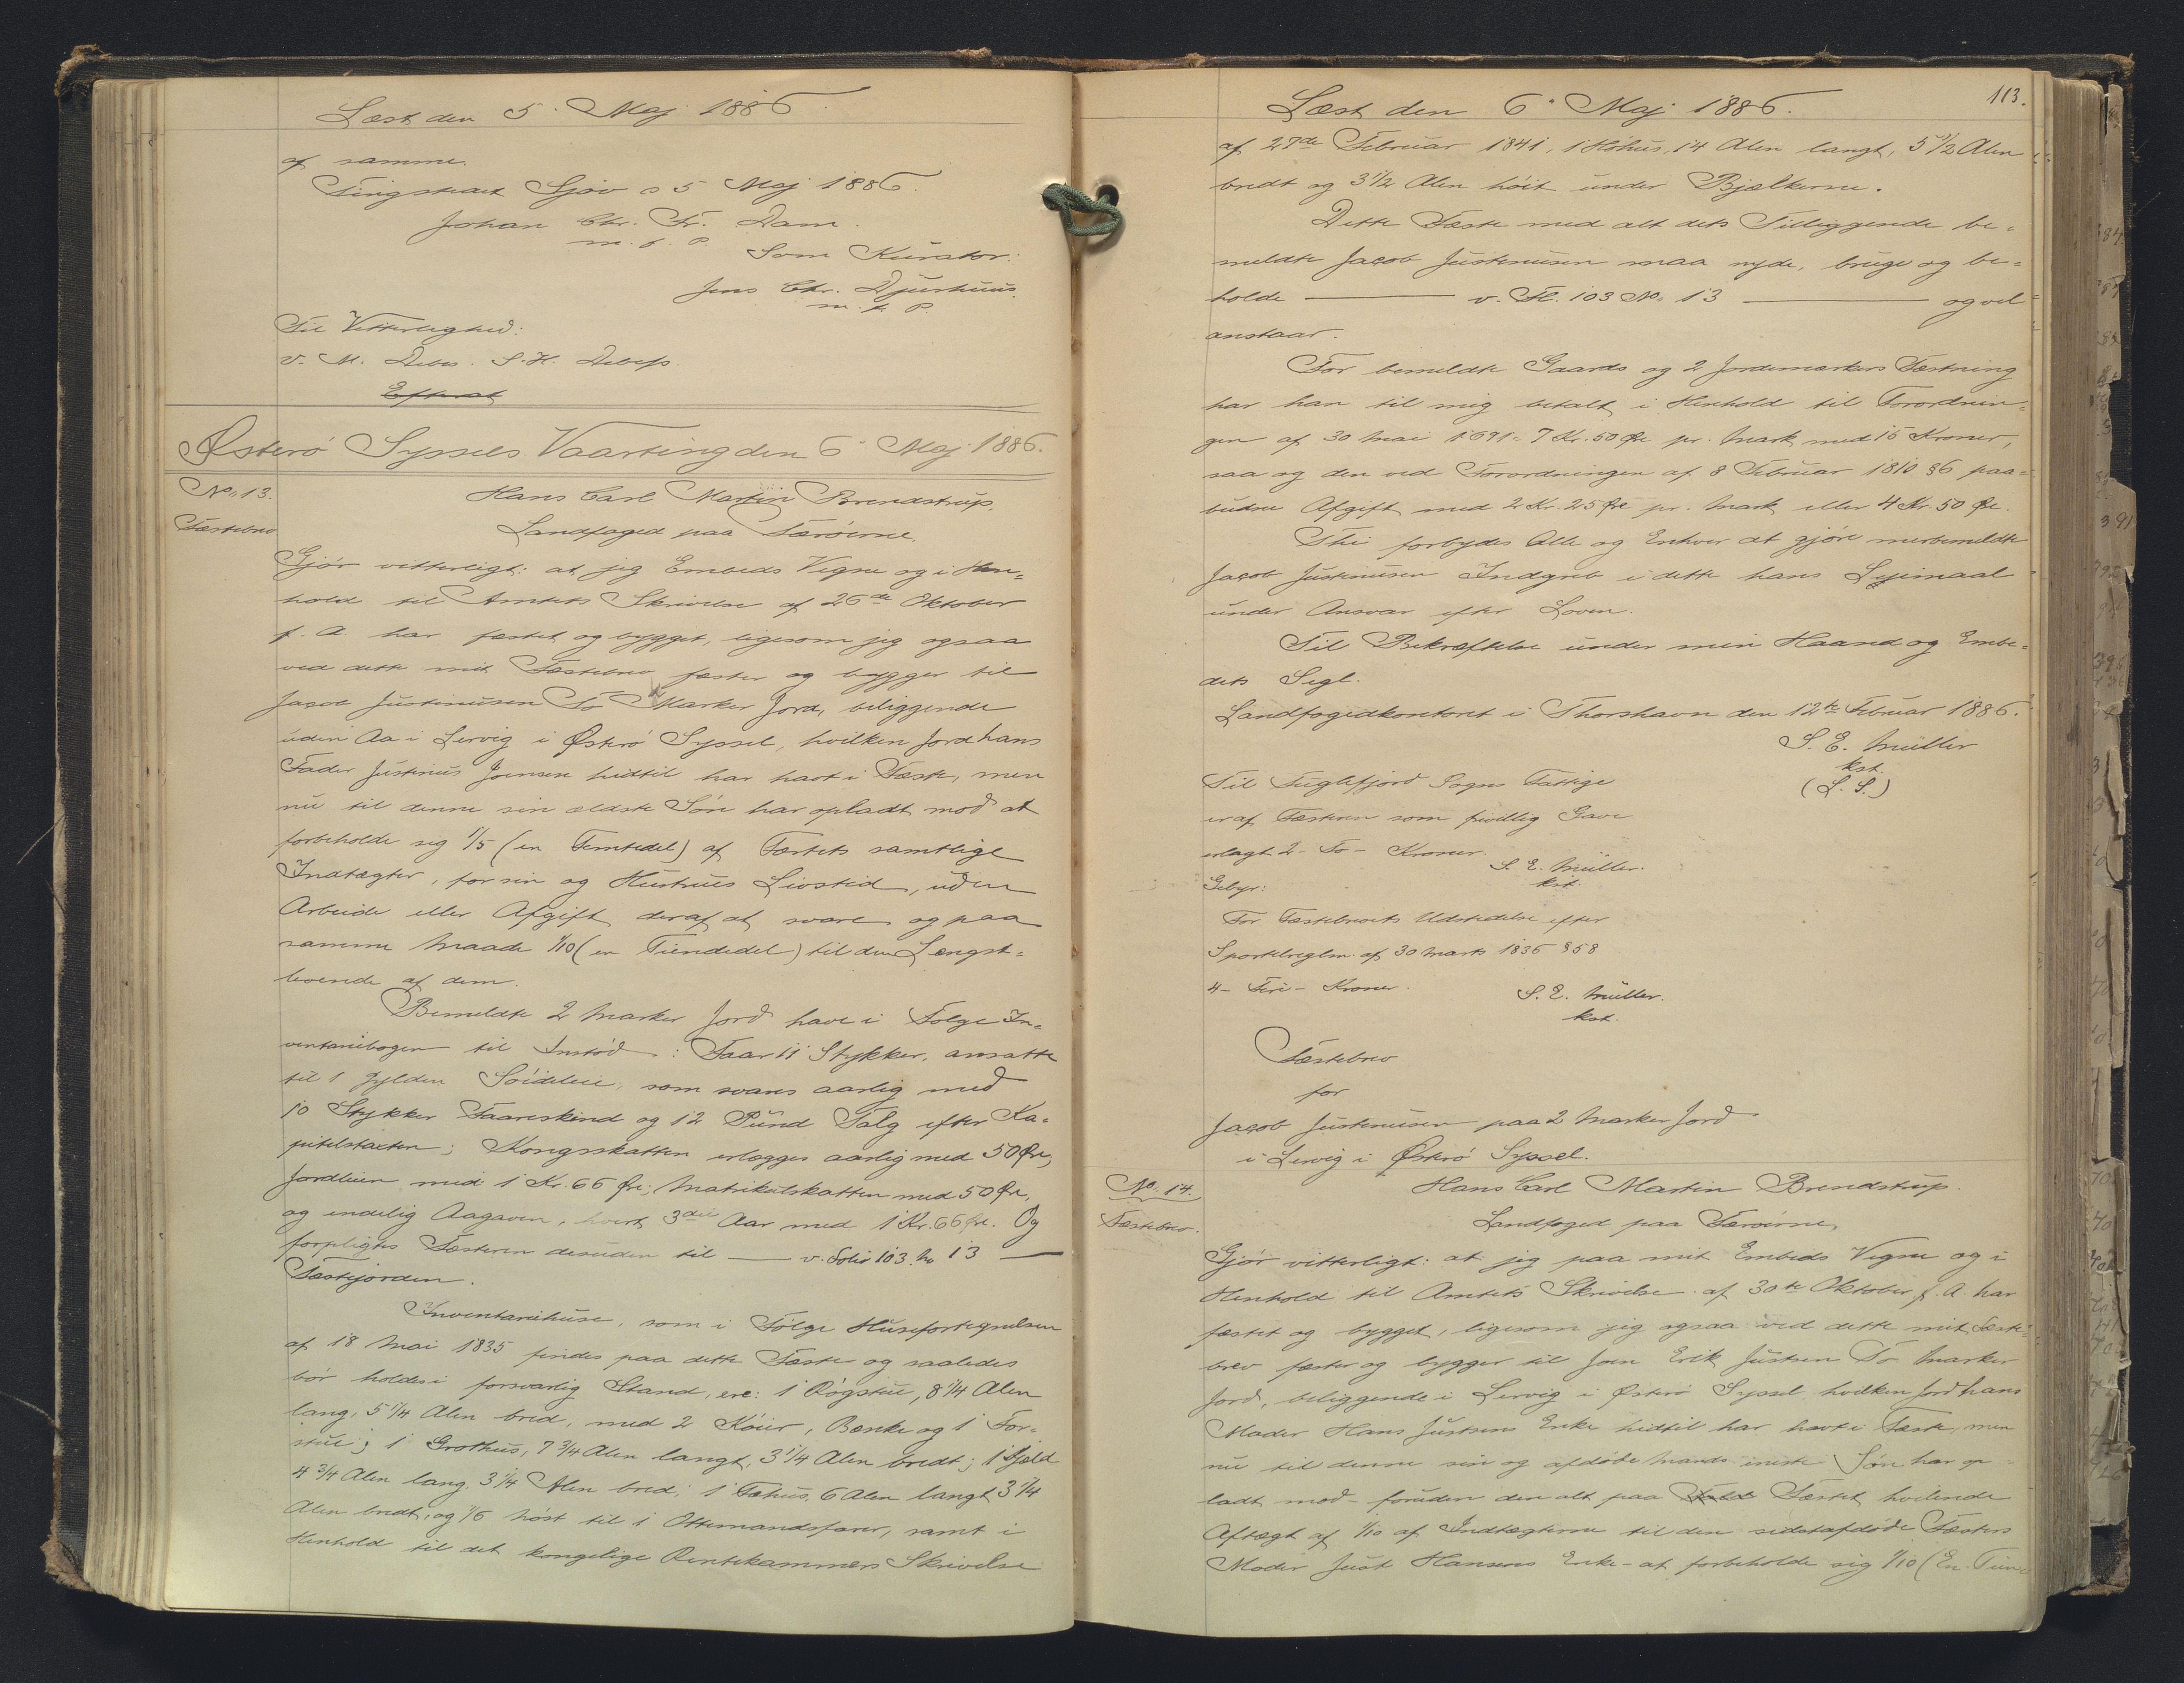 Læst den 5. Maj 1886.
af samme.
Tingstedet Sjov d 5 Maj 1886.
Johan Chr. Fr. Dam.
m. f. P.
Som Kurator:
Jens Chr. Djurhuus.
m. f. P.
Til Vitterlighed:
V. M. Debes. S. H. Debess.
Østerø Syssels Vaarting den 6' Maj 1886.
No. 13.
Fæstebrev
Hans Carl Martin Brendstrup.
Landfoged paa Færøerne.
Gjør vitterligt: at jeg Embeds Vegne og i Hen=
hold til Amtets Skrivelse af 26de Oktober
f. A. har fæstet og bygget, ligesom jeg ogsaa
ved dette mit Fæstebrev fæster og bygger til
Jacob Justinussen To Marker Jord, beliggende
uden Aa i Lervig i Østerø Syssel, hvilken Jord hans
Fader Justinus Joensen hidtil har havt i Fæste, men
nu til denne sin ældste Søn har opladt mod at
forbeholde sig 1/5 (en Femtedel) af Fæstets samtlige
Indtægter, for sin og Hustrues Livstid, uden
Arbeide eller Afgift deraf at svare og paa
samme Maade 1/10 (en Tiendedel) til den Længst=
levende af dem.
Bemeldte 2 Marker Jord have i Følge In=
ventariebogen til Instød: Faar 11 Stykker, ansatte
til 1 Gylden Søideleie, som svares aarlig med
10 Stykker Faareskind og 12 Pund Talg efter Ka=
pitelstaxten; Kongsskatten erlægges aarlig med 50 Øre,
Jordleien med 1 Kr. 66 Øre; Matrikulskatten med 50 Øre,
og endelig Aagaven, hvert 3die Aar med 1 Kr. 66 Øre. Og
forpligtes Fæsteren desuden til — v. Folio 103. No 13 —
Fæstejorden.
Inventariehuse, som i Følge Husefortegnelsen
af 18 Mai 1835 findes paa dette Fæste og saaledes
bør holdes i forsvarlig Stand, ere: 1 Røgstue, 8 1/4 Alen
lang, 5 1/4 Alen bred, med 2 Køier, Bænke og 1 For=
stue; 1 Grothus, 7 3/4 Alen langt, 3 1/4 Alen bredt; 1 Hjæld
4 3/4 Alen lang, 3 1/4 Alen bred; 1 Fæhus, 6 Alen langt 3 1/4
Alen bredt, og 1/6 Nøst til 1 Ottemandsfarer, samt i
Henhold til det kongelige Rentekammers Skrivelse
113.
Læst den 6' Maj 1886.
af 27de Februar 1841, 1 Høhus, 14 Alen langt, 5 1/2 Alen
bredt og 3 1/2 Alen høit under Bjælkerne.
Dette Fæste med alt dets Tilliggende be=
meldte Jacob Justinussen maa nyde, bruge og be=
holde — v. Fl. 103 No. 13 — og vel
anstaar.
For bemeldte Gaards og 2 Jordemarkers Fæstning
har han til mig betalt i Henhold til Forordnin=
gen af 30 Mai 1691: 7 Kr. 50 Øre pr. Mark med 15 Kroner,
saa og den ved Forordningen af 8 Februar 1810 §6 paa=
budne Afgift med 2 Kr. 25 Øre pr. Mark eller 4 Kr. 50 Øre.
Thi forbydes Alle og Enhver at gjøre merbemeldte
Jacob Justinussen Indgreb i dette hans Leiemaal
under Ansvar efter Loven.
Til Bekræftelse under min Haand og Embe=
dets Segl.
Landfogedkontoret i Thorshavn den 12te Februar 1886.
S. E. Müller
kst.
(L. S.)
Til Fuglefjord Sogns Fattige
er af Fæsteren som frivillig Gave
erlagt 2 - To - Kroner.
S. E. Müller.
kst.
Gebyr:
For Fæstebrevets Udstedelse efter
Sportelreglm. af 30 Marts 1836 §58
4 - Fire - Kroner.
S. E. Müller.
kst.
Fæstebrev
for
Jacob Justinussen paa 2 Marker Jord
i Lervig i Østerø Syssel.
No. 14.
Fæstebrev.
Hans Carl Martin Brendstrup.
Landfoged paa Færøerne
Gjør vitterligt: at jeg paa mit Embeds Vegne og i
Henhold til Amtets Skrivelse af 30te Oktober f. A. har
fæstet og bygget, ligesom jeg ogsaa ved dette mit Fæste=
brev fæster og bygger til Joen Erik Justsen To Marker
Jord, beliggende i Lervig i Østerø Syssel hvilken Jord hans
Moder Hans Justsens Enke hidtil har havt i Fæste, men
nu til denne sin og afdøde Mands eneste Søn har op
ladt mod - foruden den alt paa Fæstet hvilende
Aftægt af 1/10 af Indtægterne til den sidstafdøde Fæsters
Moder Just Hansens Enke - at forbeholde sig 1/10 (En Tien=